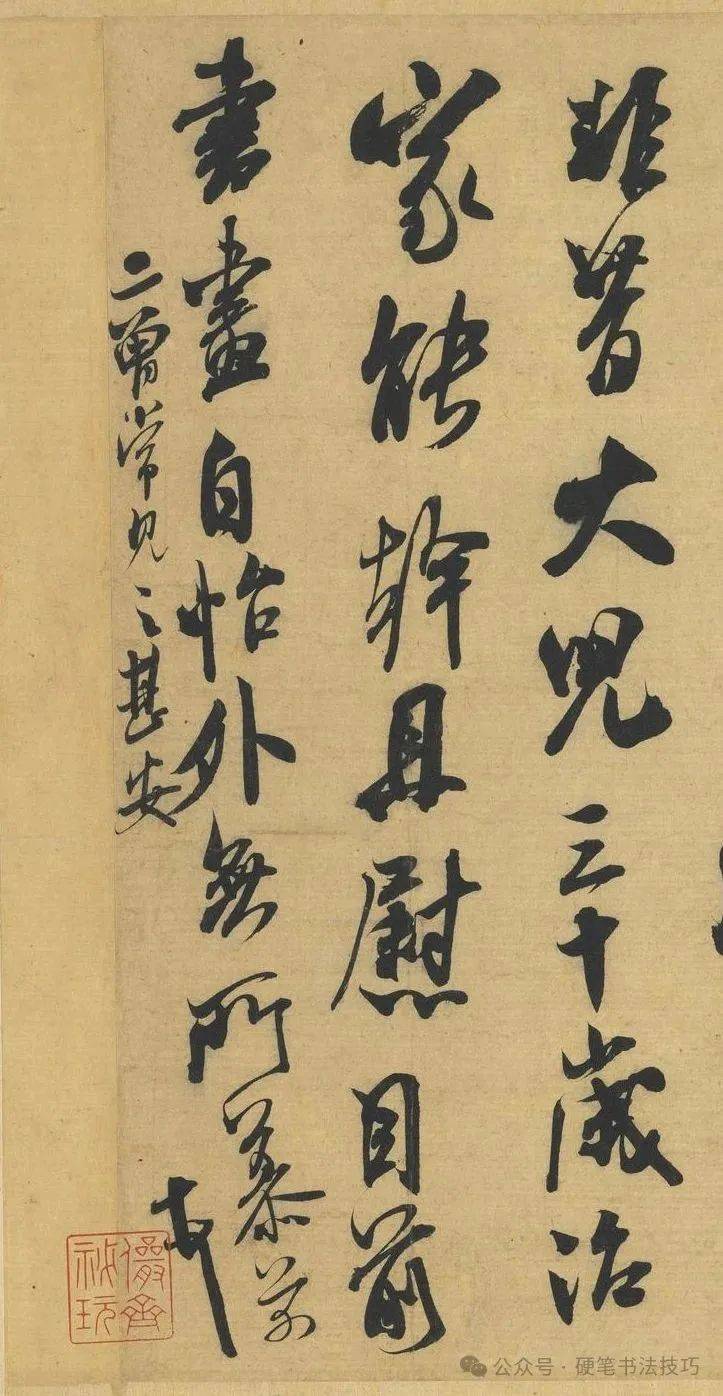 非昔大兒三十歲治
家能幹且慰目前
書畫自怡外無所慕芾
二曾常見之甚安
儼齋
祕玩
公众号·硬笔书法技巧